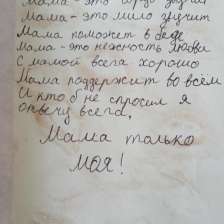 Мама - это гордо звучит
Мама - это мило звучит
Мама поможет в беде
Мама - это нежность любви
С мамой всега хорошо
Мама поддержит во всём
И кто б не спросил я
отвечу всега,
Мама только
моя!